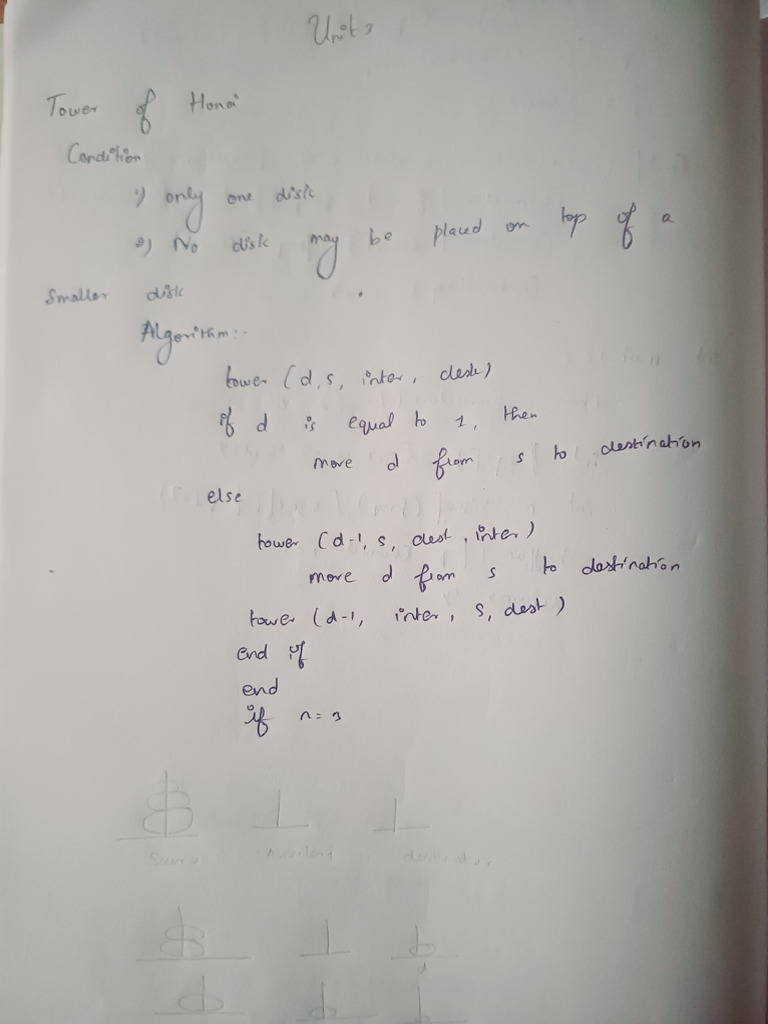 Unit 3
Tower of Honoi
Condition
1) only one disk
2) No disk may be placed on top of a
smaller disk
Algorithm:-
tower (d, s, inter, dest)
if d is equal to 1, then
move d from s to destination
else
tower (d-1, s, dest, inter)
move d from s to destination
tower (d-1, inter, s, dest)
end if
end
if n = 3
Source Auxilary
d